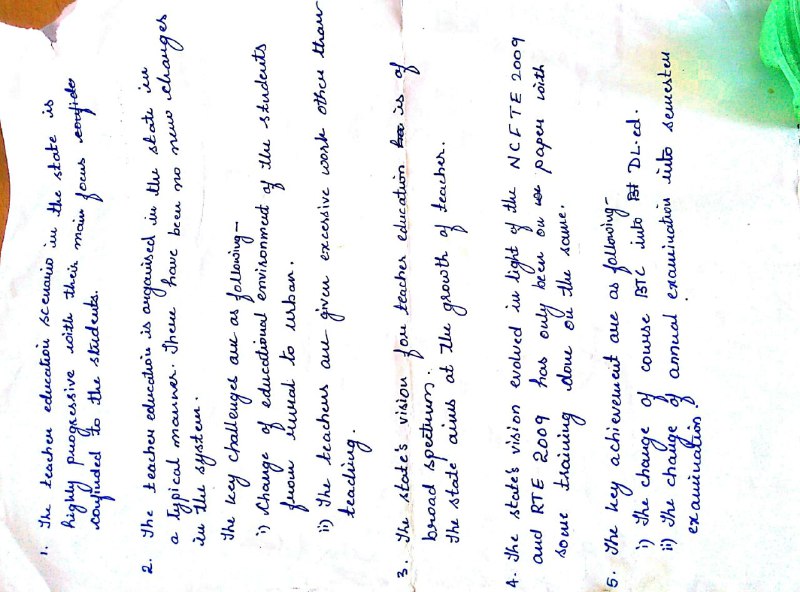 1. The teacher education scenario in the state is
highly progressive with their main focus
confided to the students.
2. The teacher education is organised in the state in
a typical manner. There have been no new changes
in the system.
The key challenges are as following-
i) Change of educational environment of the students
from rural to urban.
ii) The teachers are given excessive work other than
teaching.
3. The state's vision for teacher education is of
broad spectrum.
The state aims at the growth of teacher.
4. The state's vision evolved in light of the NCFTE 2009
and RTE 2009 has only been on paper with
some training done on the same.
5. The key achievement are as following-
i) The change of course BTC into DL.ed.
ii) The change of annual examination into semester
examination.